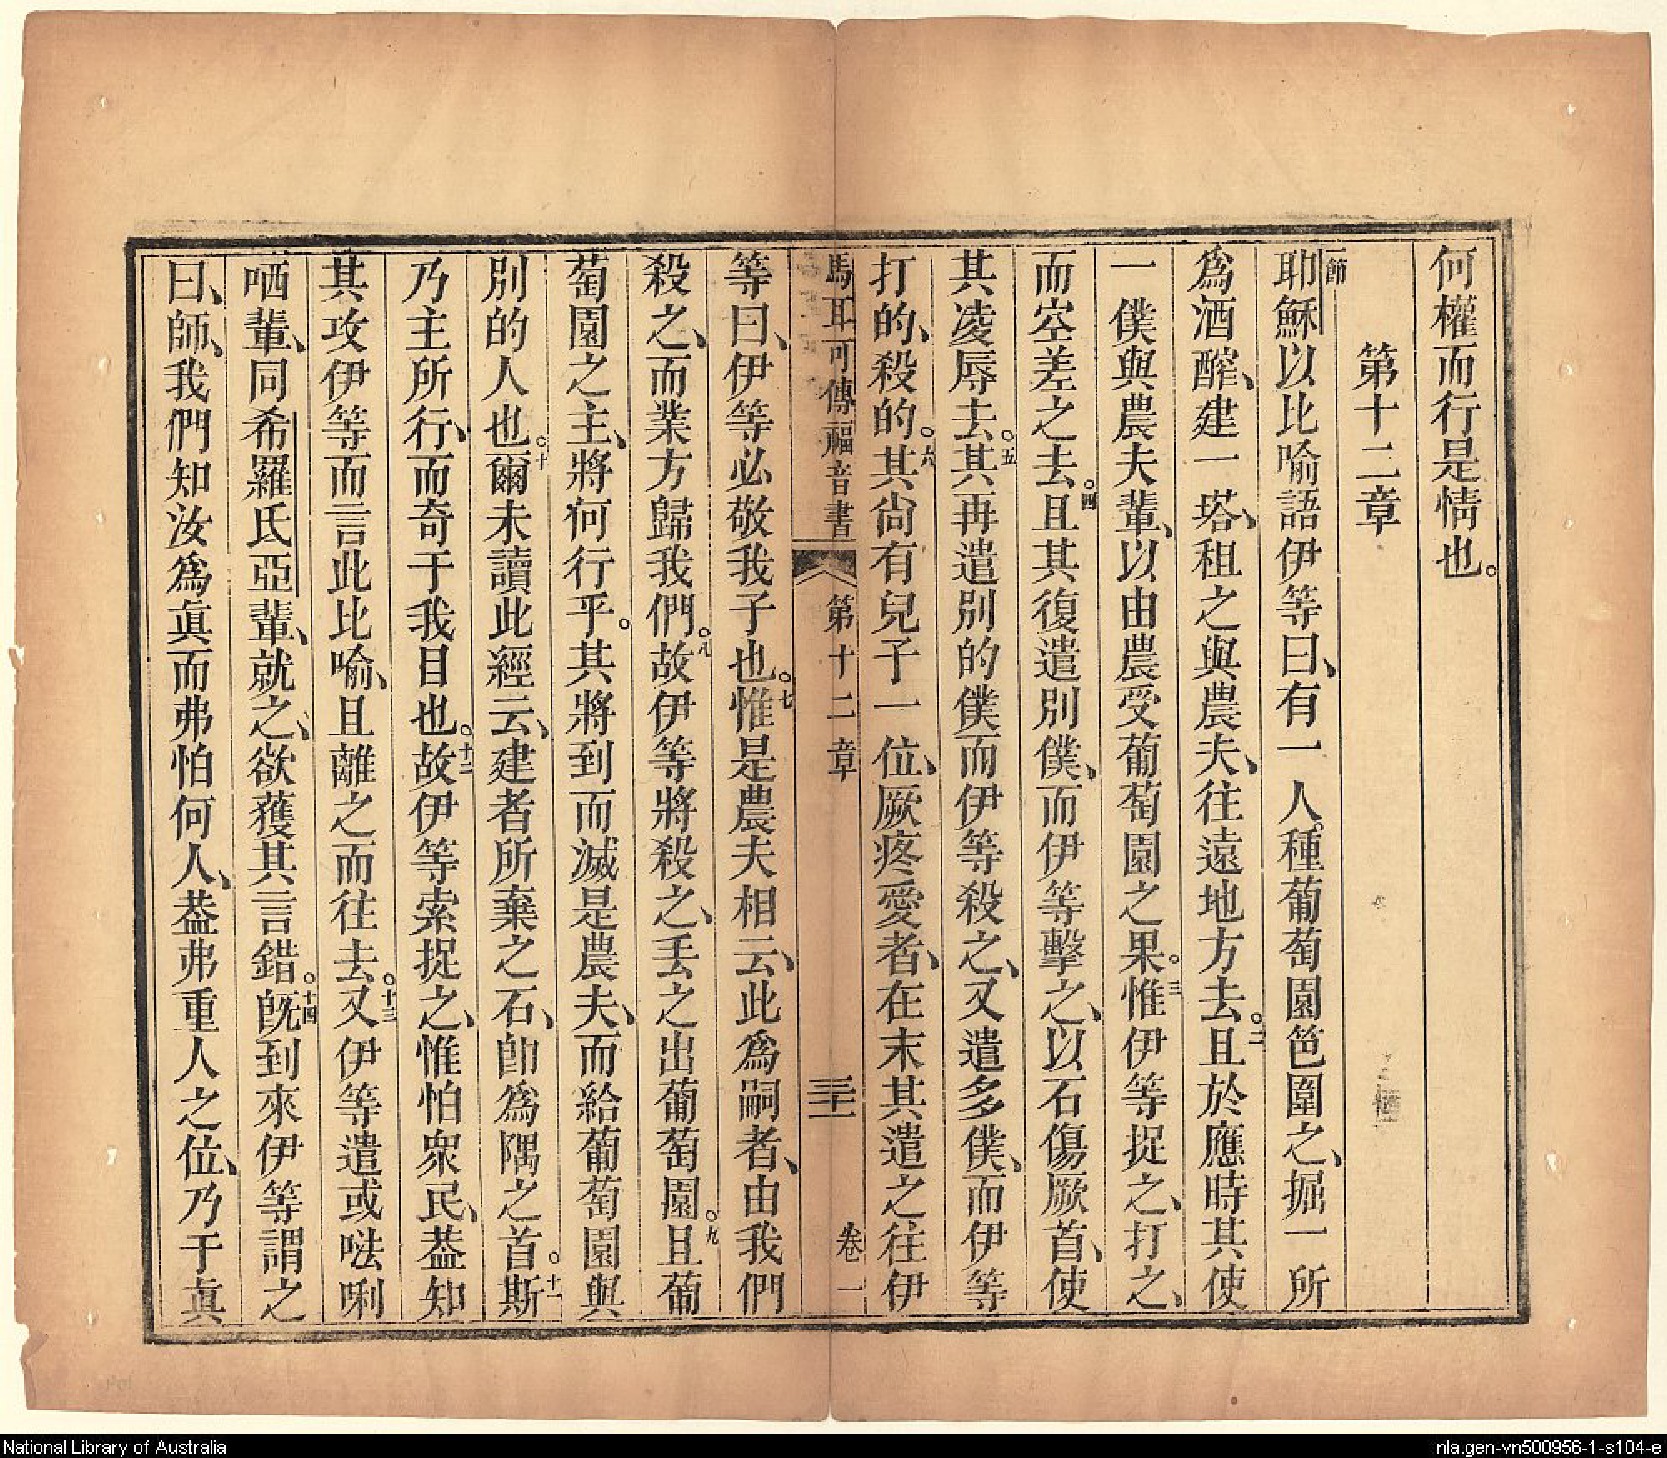 何權而行是情也。
第十二章
一節耶穌以比喻語伊等曰、有一人。種葡萄園笆圍之、掘一所
爲酒醡、建一塔、租之與農夫、往遠地方去。二且於應時其使
一僕與農夫輩、以由農受葡萄園之果。三惟伊等捉之、打之、
而空差之去。四且其復遣別僕、而伊等擊之、以石傷厥首、使
其凌辱去。五其再遣別的僕而伊等殺之、又遣多僕、而伊等
打的、殺的。六其尙有兒子一位、厥疼愛者、在末其遣之往伊
馬耳可傳福音書 第十二章 三十一 卷一
等曰、伊等必敬我子也。七惟是農夫相云、此爲嗣者、由我們
殺之、而業方歸我們。八故伊等將殺之、丟之出葡萄園。九且葡
萄園之主、將何行乎。其將到而滅是農夫、而給葡萄園與
別的人也。十爾未讀此經云、建者所棄之石、卽爲隅之首。十一斯
乃主所行、而奇于我目也。十二故伊等索捉之、惟怕衆民、葢知
其攻伊等而言此比喻、且離之而往去。十三又伊等遣或㕸唎
哂輩、同希羅氏亞輩、就之、欲獲其言錯。十四旣到來伊等謂之
曰、師、我們知汝爲眞而弗怕何人、葢弗重人之位、乃于眞
National Library of Australia
nla.gen-vn500956-1-s104-e